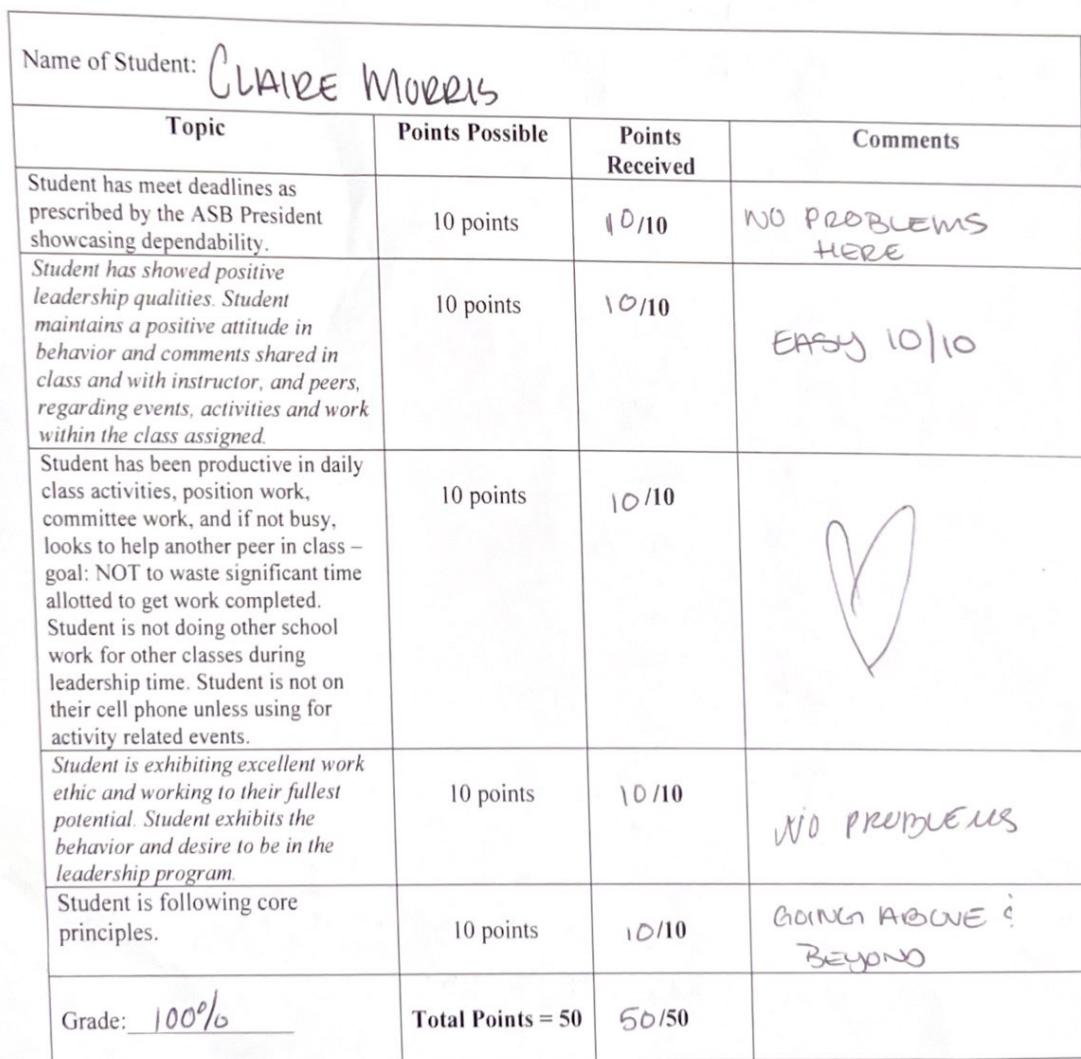 Name of Student: CLAIRE MORRIS
Topic
Points Possible
Points
Received
Comments
Student has meet deadlines as
prescribed by the ASB President
showcasing dependability.
10 points
10/10
NO PROBLEMS
HERE
Student has showed positive
leadership qualities. Student
maintains a positive attitude in
behavior and comments shared in
class and with instructor, and peers,
regarding events, activities and work
within the class assigned.
10 points
10/10
EASY 10/10
Student has been productive in daily
class activities, position work,
committee work, and if not busy,
looks to help another peer in class –
goal: NOT to waste significant time
allotted to get work completed.
Student is not doing other school
work for other classes during
leadership time. Student is not on
their cell phone unless using for
activity related events.
10 points
10/10
Student is exhibiting excellent work
ethic and working to their fullest
potential. Student exhibits the
behavior and desire to be in the
leadership program.
10 points
10/10
NO PROBLEMS
Student is following core
principles.
10 points
10/10
GOING ABOVE &
BEYOND
Grade: 100%
Total Points = 50
50/50